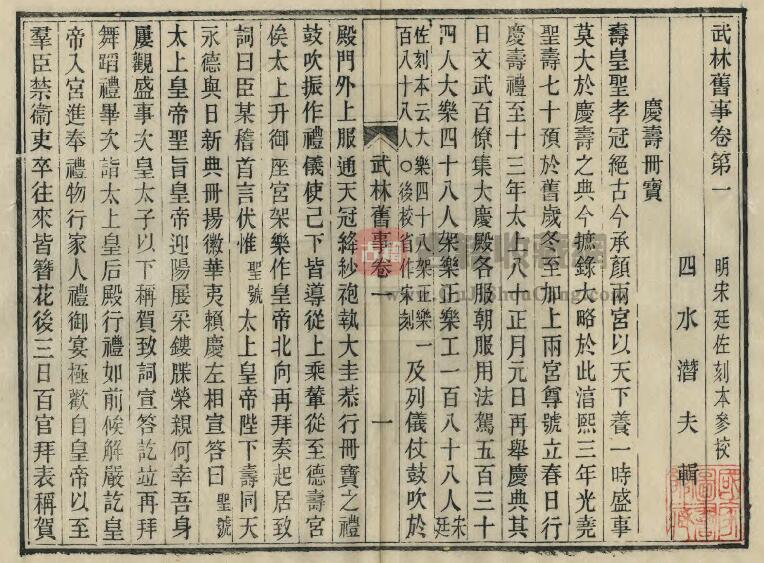 武林舊事卷第一
明宋廷佐刻本參校
四水潛夫輯
慶壽冊寶
壽皇聖孝冠絕古今承顏兩宮以天下養一時盛事
莫大於慶壽之典今摭錄大略於此淳熙三年光堯
聖壽七十預於舊歲冬至加上兩宮尊號立春日行
慶壽禮至十三年太上八十正月元日再舉慶典其
日文武百僚集大慶殿各服朝服用法駕五百三十
四人大樂四十八人架樂正樂工一百八十八人宋廷
佐刻本云大樂四十八架正樂一
百八十八人○後校省作宋刻
及列儀仗鼓吹於
武林舊事卷一
一
殿門外上服通天冠絳紗袍執大圭恭行冊寶之禮
鼓吹振作禮儀使已下皆導從上乘輦從至德壽宮
俟太上升御座宮架樂作皇帝北向再拜奏起居致
詞曰臣某稽首言伏惟聖號太上皇帝陛下壽同天
永德與日新典冊揚徽華夷賴慶左相宣答曰聖號
太上皇帝聖旨皇帝迎陽展采鏤牒榮親何幸吾身
屢觀盛事次皇太子以下稱賀致詞宣答訖竝再拜
舞蹈禮畢次詣太上皇后殿行禮如前候解嚴訖皇
帝入宮進奉禮物行家人禮御宴極歡自皇帝以至
羣臣禁衞吏卒往來皆簪花後三日百官拜表稱賀